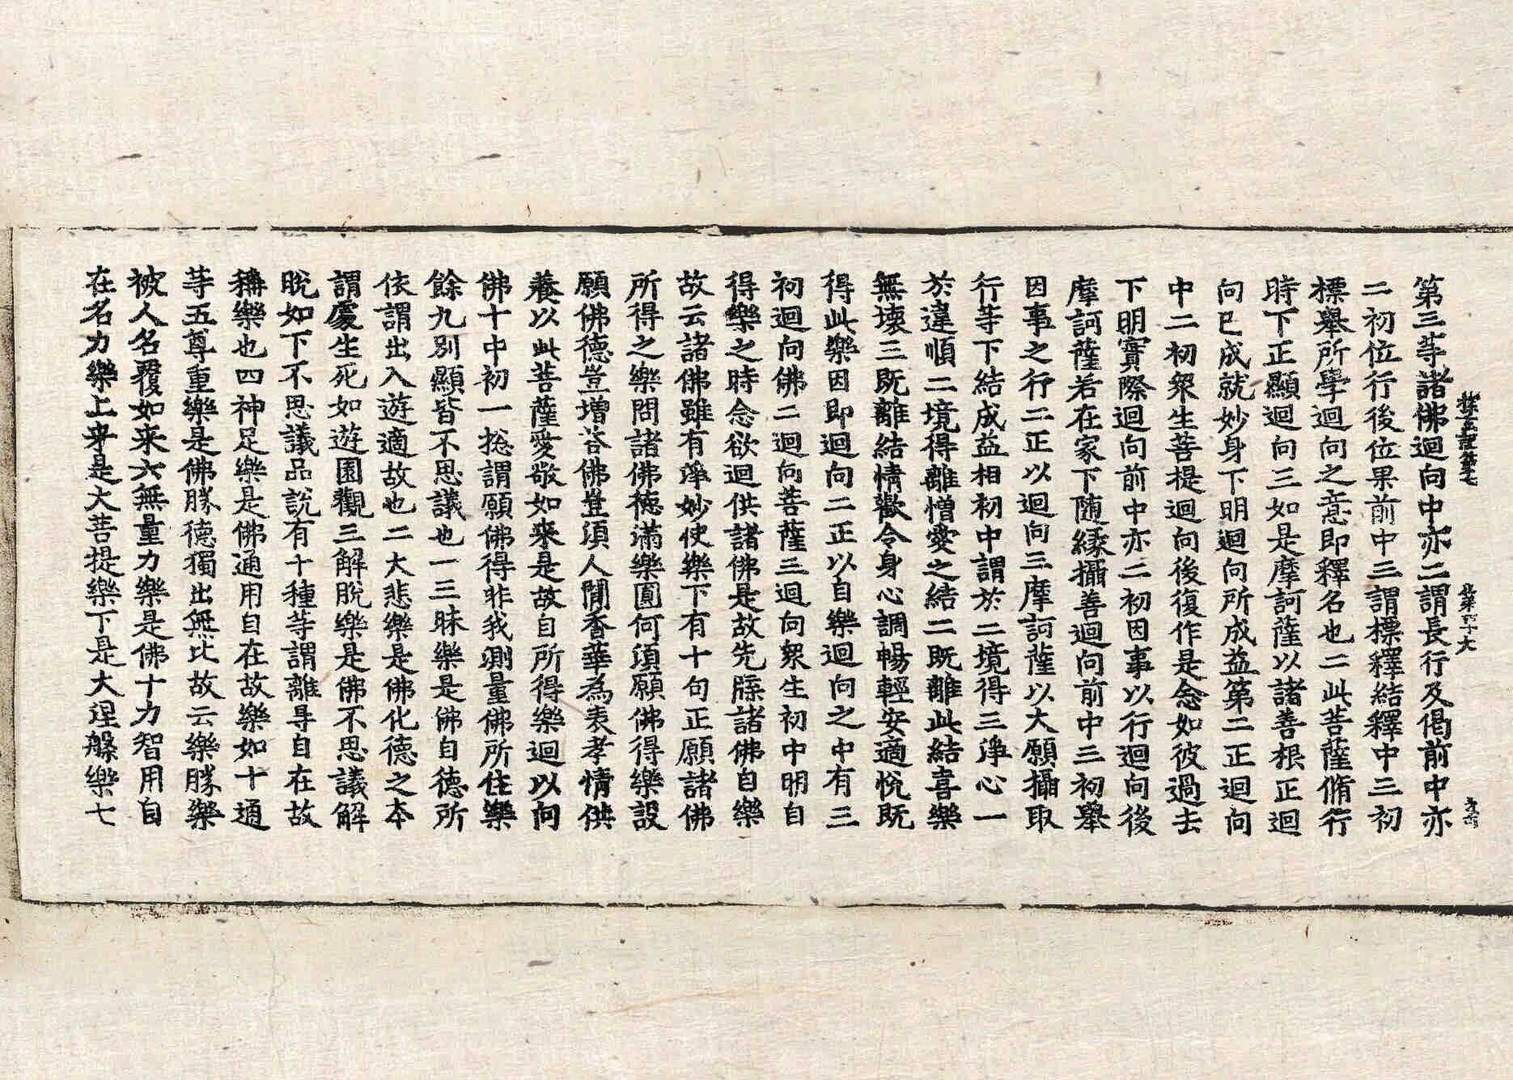 探玄記第七
第三等諸佛迴向中亦二謂長行及偈前中亦
二初位行後位果前中三謂標釋結釋中三初
標舉所學迴向之意即釋名也二此菩薩脩行
時下正顯迴向三如是摩訶薩以諸善根正迴
向已成就妙身下明迴向所成益第二正迴向
中二初衆生菩提迴向後復作是念如彼過去
下明實際迴向前中亦二初因事以行迴向後
摩訶薩若在家下随縁攝善迴向前中三初舉
因事之行二正以迴向三摩訶薩以大願攝取
行等下結成益相初中謂於二境得三淨心一
於違順二境得離憎愛之結二既離此結喜樂
無壊三既離結情歡令身心調暢輕安適悅既
得此樂因即迴向二正以自樂迴向之中有三
初迴向佛二迴向菩薩三迴向衆生初中明自
得樂之時念欲迴供諸佛是故先牒諸佛自樂
故云諸佛雖有淨妙使樂下有十句正願諸佛
所得之樂問諸佛德滿樂圓何須願佛得樂設
願佛德豈增荅佛豈須人間香華為表孝情供
養以此菩薩愛敬如来是故自所得樂迴以向
佛十中初一捴謂願佛得非我測量佛所住樂
餘九別顯皆不思議也一三昧樂是佛自德所
依謂出入遊適故也二大悲樂是佛化德之本
謂處生死如遊園觀三解脫樂是佛不思議解
脫如下不思議品說有十種等謂離㝵自在故
稱樂也四神足樂是佛通用自在故樂如十通
等五尊重樂是佛勝德獨出無比故云樂勝樂
被人名覆如来六無量力樂是佛十力智用自
在名力樂上来是大菩提樂下是大涅槃樂七